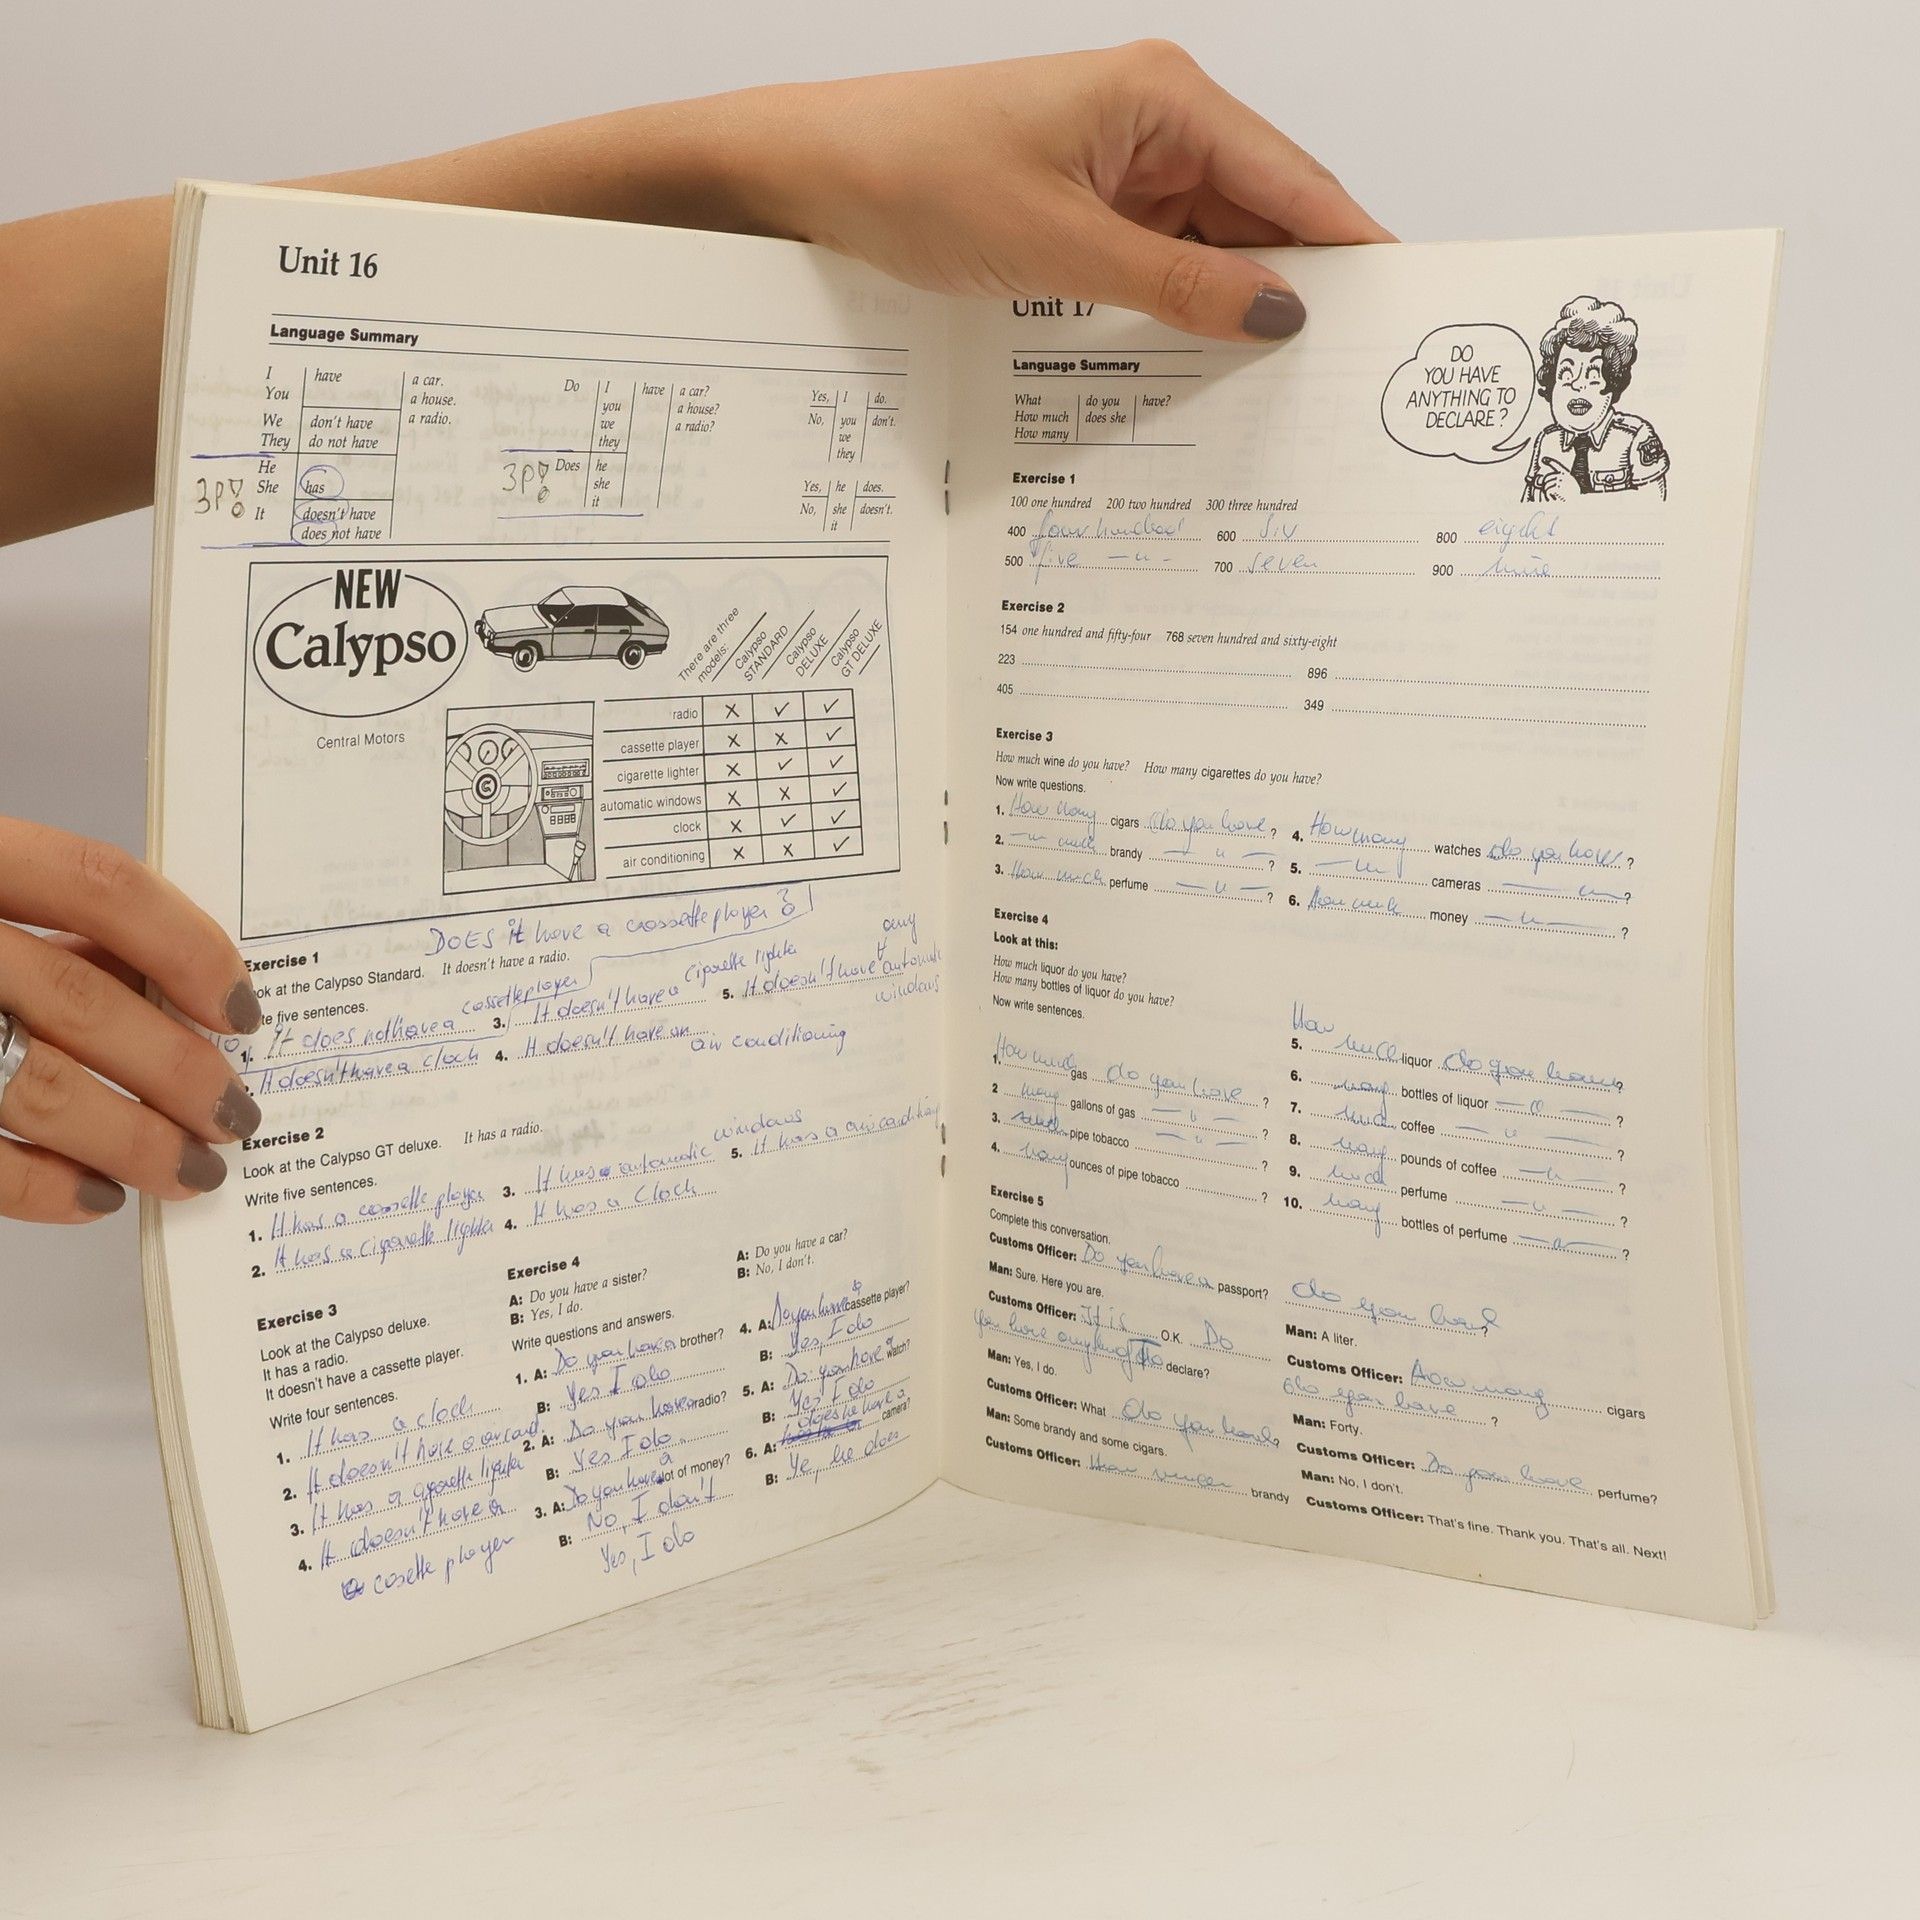 Unit 16
Language Summary
I have a car.
You a house.
We don't have a radio.
They do not have
He
She has
It doesn't have
does not have
3P!
Do I have a car?
you a house?
we a radio?
they
3P! Does he
she
it
Yes, I do.
No, you don't.
we
they
Yes, he does.
No, she doesn't.
it
NEW
Calypso
Central Motors
There are three models:
Calypso STANDARD
Calypso DELUXE
Calypso GT DELUXE
radio X ✓ ✓
cassette player X X ✓
cigarette lighter X ✓ ✓
automatic windows X X ✓
clock X ✓ ✓
air conditioning X X ✓
DOES it have a cassette player?
Exercise 1
ook at the Calypso Standard. It doesn't have a radio.
te five sentences.
1. It does not have a cassetteplayer
It doesn't have a clock
3. It doesn't have a cigarette lighter
4. It doesn't have an air conditioning
5. It doesn't have any automatic windows
Exercise 2
Look at the Calypso GT deluxe. It has a radio.
Write five sentences.
1. It has a cassette player
2. It has a cigarette lighter
3. It has automatic windows
4. It has a Clock
5. It has a airconditioning
Exercise 3
Look at the Calypso deluxe.
It has a radio.
It doesn't have a cassette player.
Write four sentences.
1. It has a clock
2. It doesn't have a
3. It has a cigarette lighter
4. It doesn't have a
cosette player
Exercise 4
A: Do you have a sister?
B: Yes, I do.
A: Do you have a car?
B: No, I don't.
Write questions and answers.
1. A: Do you have a brother?
B: Yes I do
2. A: Do you have a radio?
B: Yes I do.
3. A: Do you have a lot of money?
B: No, I don't
Yes, I do
4. A: Do you have a cassette player?
B: Yes, I do
5. A: Do you have a watch?
B: Yes I do
6. A: does he have a camera?
B: Ye, he does
Unit 17
Language Summary
What do you have?
How much does she
How many
DO
YOU HAVE
ANYTHING TO
DECLARE?
Exercise 1
100 one hundred 200 two hundred 300 three hundred
400 four hundred 600 six 800 eight
500 five —"— 700 seven 900 nine
Exercise 2
154 one hundred and fifty-four 768 seven hundred and sixty-eight
223 896
405 349
Exercise 3
How much wine do you have? How many cigarettes do you have?
Now write questions.
1. How many cigars do you have?
2. —"— much brandy —"—?
3. How much perfume —"—?
4. How many watches do you have?
5. —"— cameras —"—?
6. How much money —"—?
Exercise 4
Look at this:
How much liquor do you have?
How many bottles of liquor do you have?
Now write sentences.
1. How much gas do you have?
2 many gallons of gas —"—?
3. much pipe tobacco —"—?
4. many ounces of pipe tobacco ?
5. How much liquor do you have?
6. many bottles of liquor —"—?
7. much coffee —"—?
8. many pounds of coffee —"—?
9. much perfume —"—?
10. many bottles of perfume —"—?
Exercise 5
Complete this conversation.
Customs Officer: Do you have a passport?
Man: Sure. Here you are.
Customs Officer: It is O.K. Do
you have anything To declare?
Man: Yes, I do.
Customs Officer: What do you have?
Man: Some brandy and some cigars.
Customs Officer: How much brandy
do you have?
Man: A liter.
Customs Officer: How many cigars
do you have?
Man: Forty.
Customs Officer: Do you have perfume?
Man: No, I don't.
Customs Officer: That's fine. Thank you. That's all. Next!